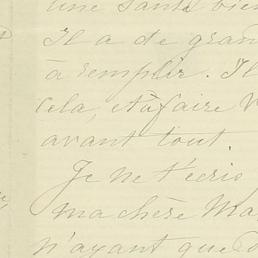 une santé bien
Il a de grand
à remplir. Il
cela, et à faire V
avant tout.
Je ne t'écris
ma chère Ma
n'ayant que